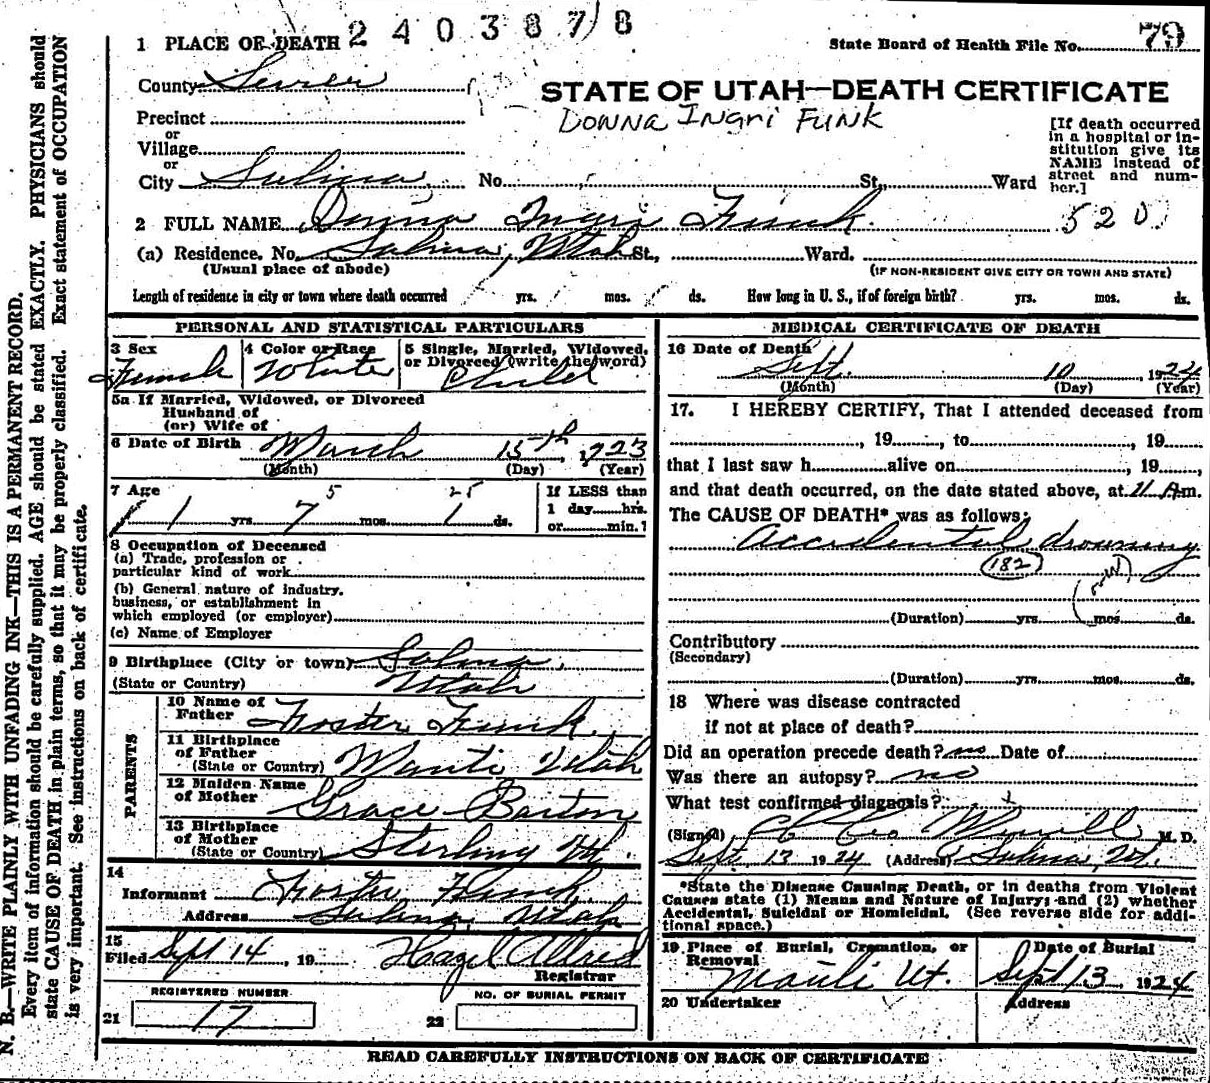 2403878
State Board of Health File No. 79
1 PLACE OF DEATH
County Sevier
STATE OF UTAH—DEATH CERTIFICATE
Donna Ingri Funk
Precinct
or
Village
or
City Salina No. St., Ward
[If death occurred in a hospital or institution give its NAME instead of street and number.]
2 FULL NAME Donna Ingri Funk.
520
(a) Residence. No. Salina, Utah St., Ward.
(Usual place of abode) (IF NON-RESIDENT GIVE CITY OR TOWN AND STATE)
Length of residence in city or town where death occurred yrs. mos. ds. How long in U. S., if of foreign birth? yrs. mos. ds.
PERSONAL AND STATISTICAL PARTICULARS
3 Sex Female
4 Color or Race White
5 Single, Married, Widowed, or Divorced (write the word) Child
5a If Married, Widowed, or Divorced
Husband of
(or) Wife of
6 Date of Birth March 15th, 1923
(Month) (Day) (Year)
7 Age 5 25
1 yrs. 7 mos. 1 ds.
If LESS than
1 day......hrs.
or......min.?
8 Occupation of Deceased
(a) Trade, profession or
particular kind of work
(b) General nature of industry,
business, or establishment in
which employed (or employer)
(c) Name of Employer
9 Birthplace (City or town) Salina,
(State or Country) Utah
PARENTS
10 Name of Father Foster Funk.
11 Birthplace of Father (State or Country) Manti Utah
12 Maiden Name of Mother Grace Barton
13 Birthplace of Mother (State or Country) Sterling Ut.
14
Informant Foster Funk
Address Salina, Utah
15
Filed Sept 14, 19 Hazel Allred
Registrar
REGISTERED NUMBER
21 17
NO. OF BURIAL PERMIT
22
MEDICAL CERTIFICATE OF DEATH
16 Date of Death Sept. 10, 1924
(Month) (Day) (Year)
17. I HEREBY CERTIFY, That I attended deceased from
, 19 , to , 19
that I last saw h alive on , 19 ,
and that death occurred, on the date stated above, at 11 A.m.
The CAUSE OF DEATH* was as follows:
Accidental drowning
182
(Duration) yrs. mos. ds.
Contributory
(Secondary)
(Duration) yrs. mos. ds.
18 Where was disease contracted
if not at place of death?
Did an operation precede death? no Date of
Was there an autopsy? no
What test confirmed diagnosis?
(Signed) M. D.
Sept 13 1924 (Address) Salina, Ut.
*State the Disease Causing Death, or in deaths from Violent
Causes state (1) Means and Nature of Injury; and (2) whether
Accidental, Suicidal or Homicidal. (See reverse side for addi-
tional space.)
19 Place of Burial, Cremation, or Removal Manti Ut.
Date of Burial Sept 13 1924
20 Undertaker Address
READ CAREFULLY INSTRUCTIONS ON BACK OF CERTIFICATE
N. B.—WRITE PLAINLY WITH UNFADING INK—THIS IS A PERMANENT RECORD.
Every item of information should be carefully supplied. AGE should be stated EXACTLY. PHYSICIANS should
state CAUSE OF DEATH in plain terms, so that it may be properly classified. Exact statement of OCCUPATION
is very important. See instructions on back of certificate.